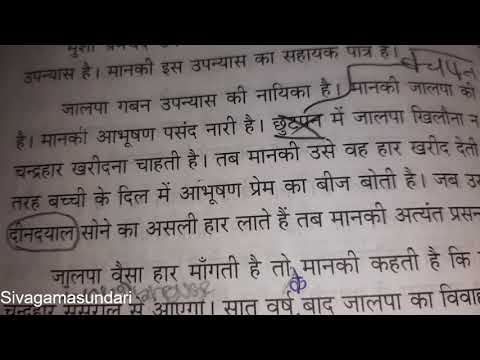 उपन्यास है। मानकी इस उपन्यास का सहायक पात्र है।
बचपन
जालपा गबन उपन्यास की नायिका है। मानकी जालपा की
है। मानकी आभूषण पसंद नारी है। छुटपन में जालपा खिलौना न
चन्द्रहार खरीदना चाहती है। तब मानकी उसे वह हार खरीद देती
तरह बच्ची के दिल में आभूषण प्रेम का बीज बोती है। जब उस
दीनदयाल सोने का असली हार लाते हैं तब मानकी अत्यंत प्रसन
जालपा वैसा हार माँगती है तो मानकी कहती है कि
के
चन्द्रहार ससुराल से आएगा। सात वर्ष बाद जालपा का विवाह
Sivagamasundari